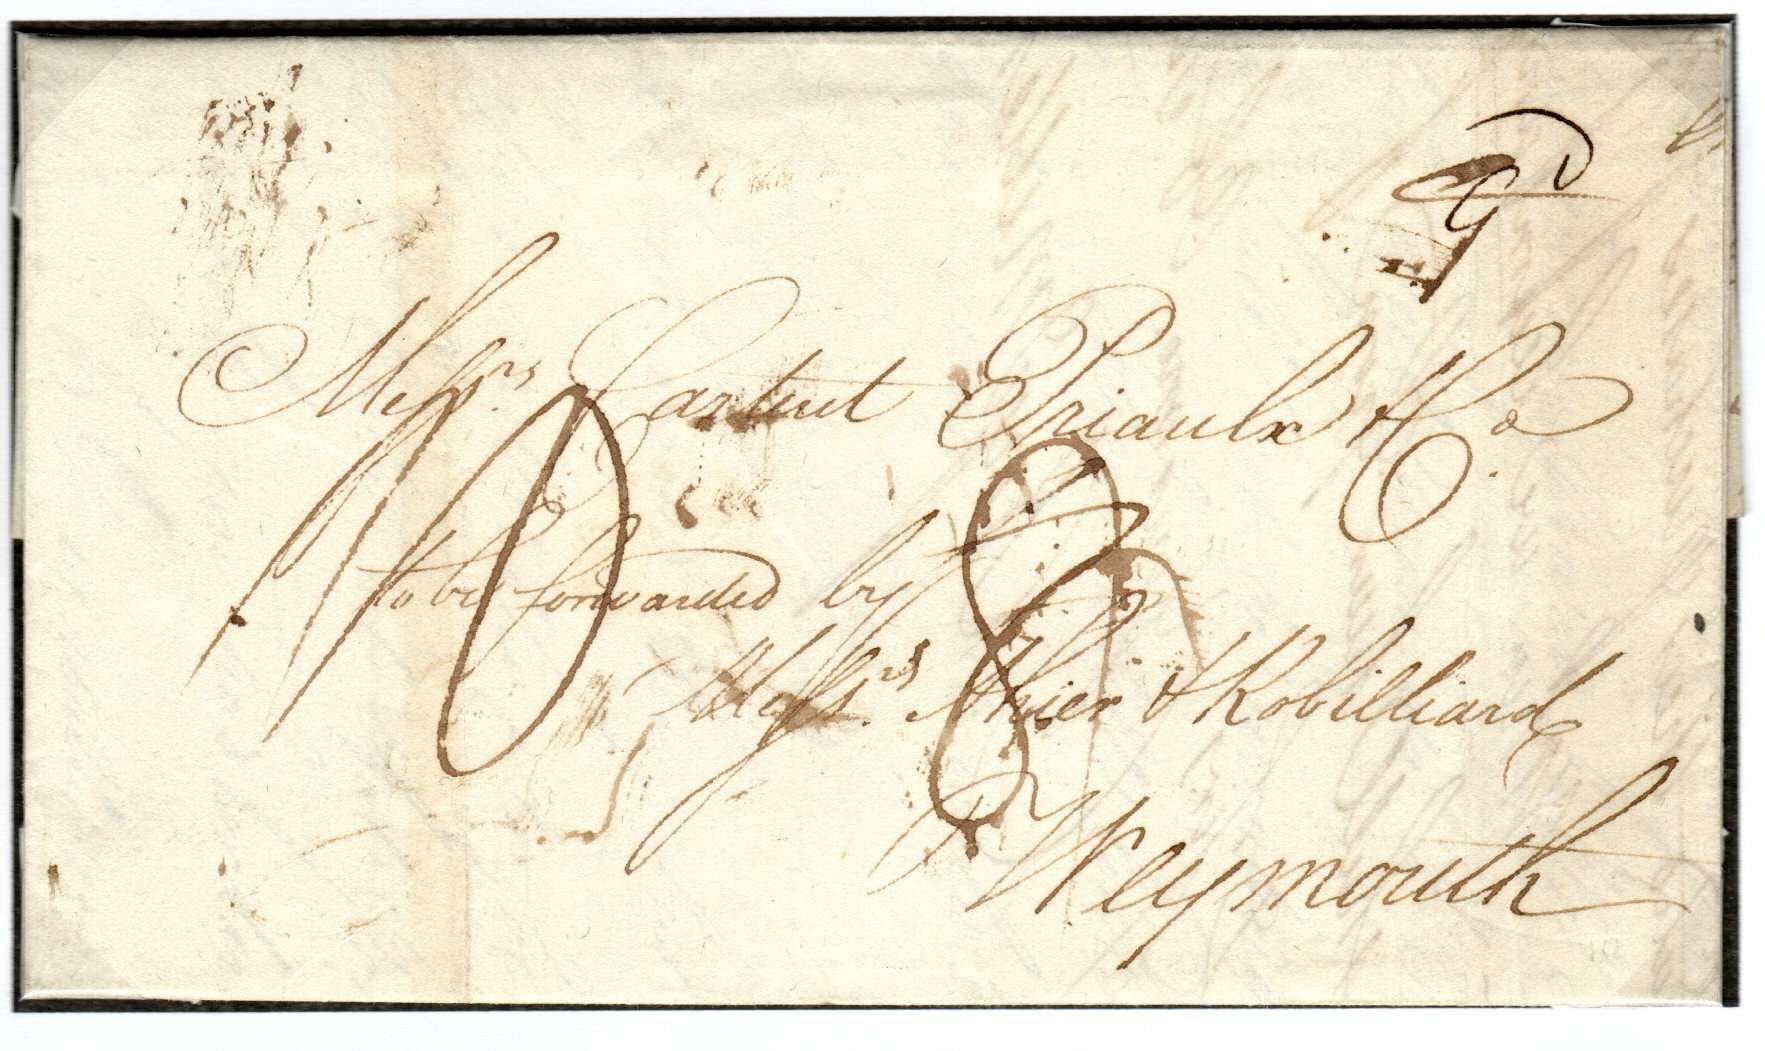 Messrs. Carteret Priaulx & Co.
to be forwarded by
Messrs. & Robilliard
Weymouth